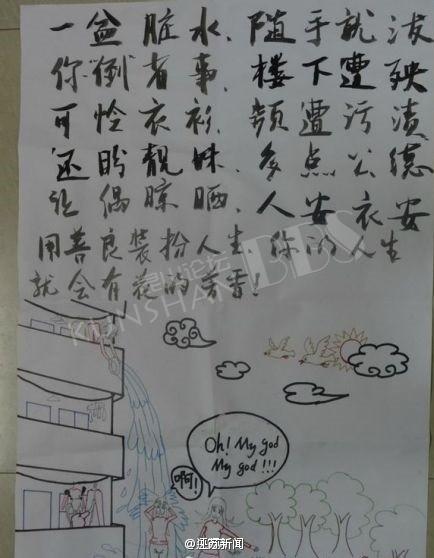 一盆脏水，随手就泼
你倒省事，楼下遭殃
可怜衣衫，频遭污渍
还盼靓妹，多点公德
让偶晾晒，人安衣安
用善良装扮人生，你的人生
就会有花的芳香！
KUNSHAN BBS
Oh! My god
My god !!!
啊！
江苏新闻